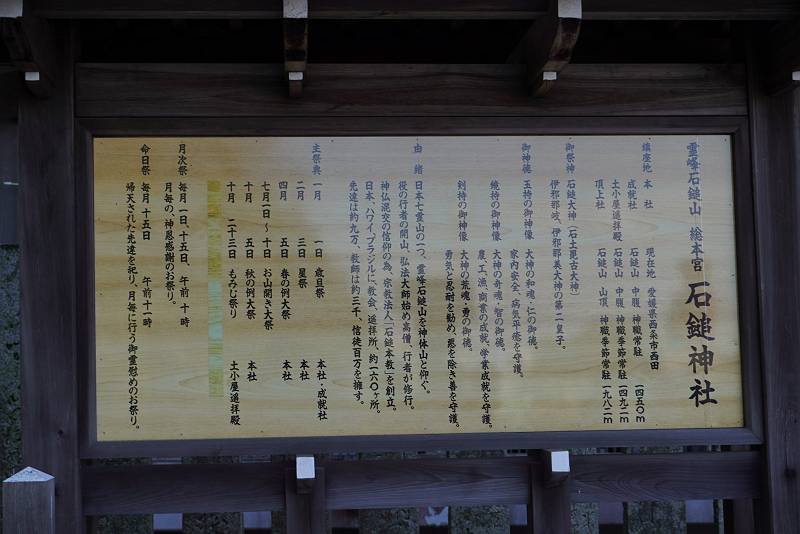 霊峰石鎚山 総本宮 石鎚神社
鎮座地 本社 現在地 愛媛県西条市西田
成就社 石鎚山 中腹 神職常駐 一四五〇m
土小屋遥拝殿 石鎚山 中腹 神職季節常駐 一四九二m
頂上社 石鎚山 山頂 神職季節常駐 一九八二m
御祭神 石鎚大神(石土毘古大神)
伊邪那岐、伊邪那美大神の第二皇子。
御神徳 玉持の御神像 大神の和魂・仁の御徳。
家内安全、病気平癒を守護。
鏡持の御神像 大神の奇魂・智の御徳。
農、工、漁、商業の成就、学業成就を守護。
剣持の御神像 大神の荒魂・勇の御徳。
勇気と忍耐を勧め、悪を除き善を守護。
由緒 日本七霊山の一つ、霊峰石鎚山を神体山と仰ぐ。
役の行者の開山、弘法大師始め高僧、行者が修行。
神仏混交の信仰の為、宗教法人「石鎚本教」を創立。
日本、ハワイ、ブラジルに、教会、遥拝所、約一六〇ヶ所。
先達は約九万、教師は約三千、信徒百万を擁す。
主祭典 一月 一日 歳旦祭 本社・成就社
二月 三日 星祭 本社
四月 五日 春の例大祭 本社
七月一日〜十日 お山開き大祭
十月 五日 秋の例大祭 本社
十月 二十三日 もみじ祭り 土小屋遥拝殿
月次祭 毎月 一日、十五日、午前 十 時
月毎の、神恩感謝のお祭り。
命日祭 毎月 十五日 午前十一時
帰天された先達を祀り、月毎に行う御霊慰めのお祭り。